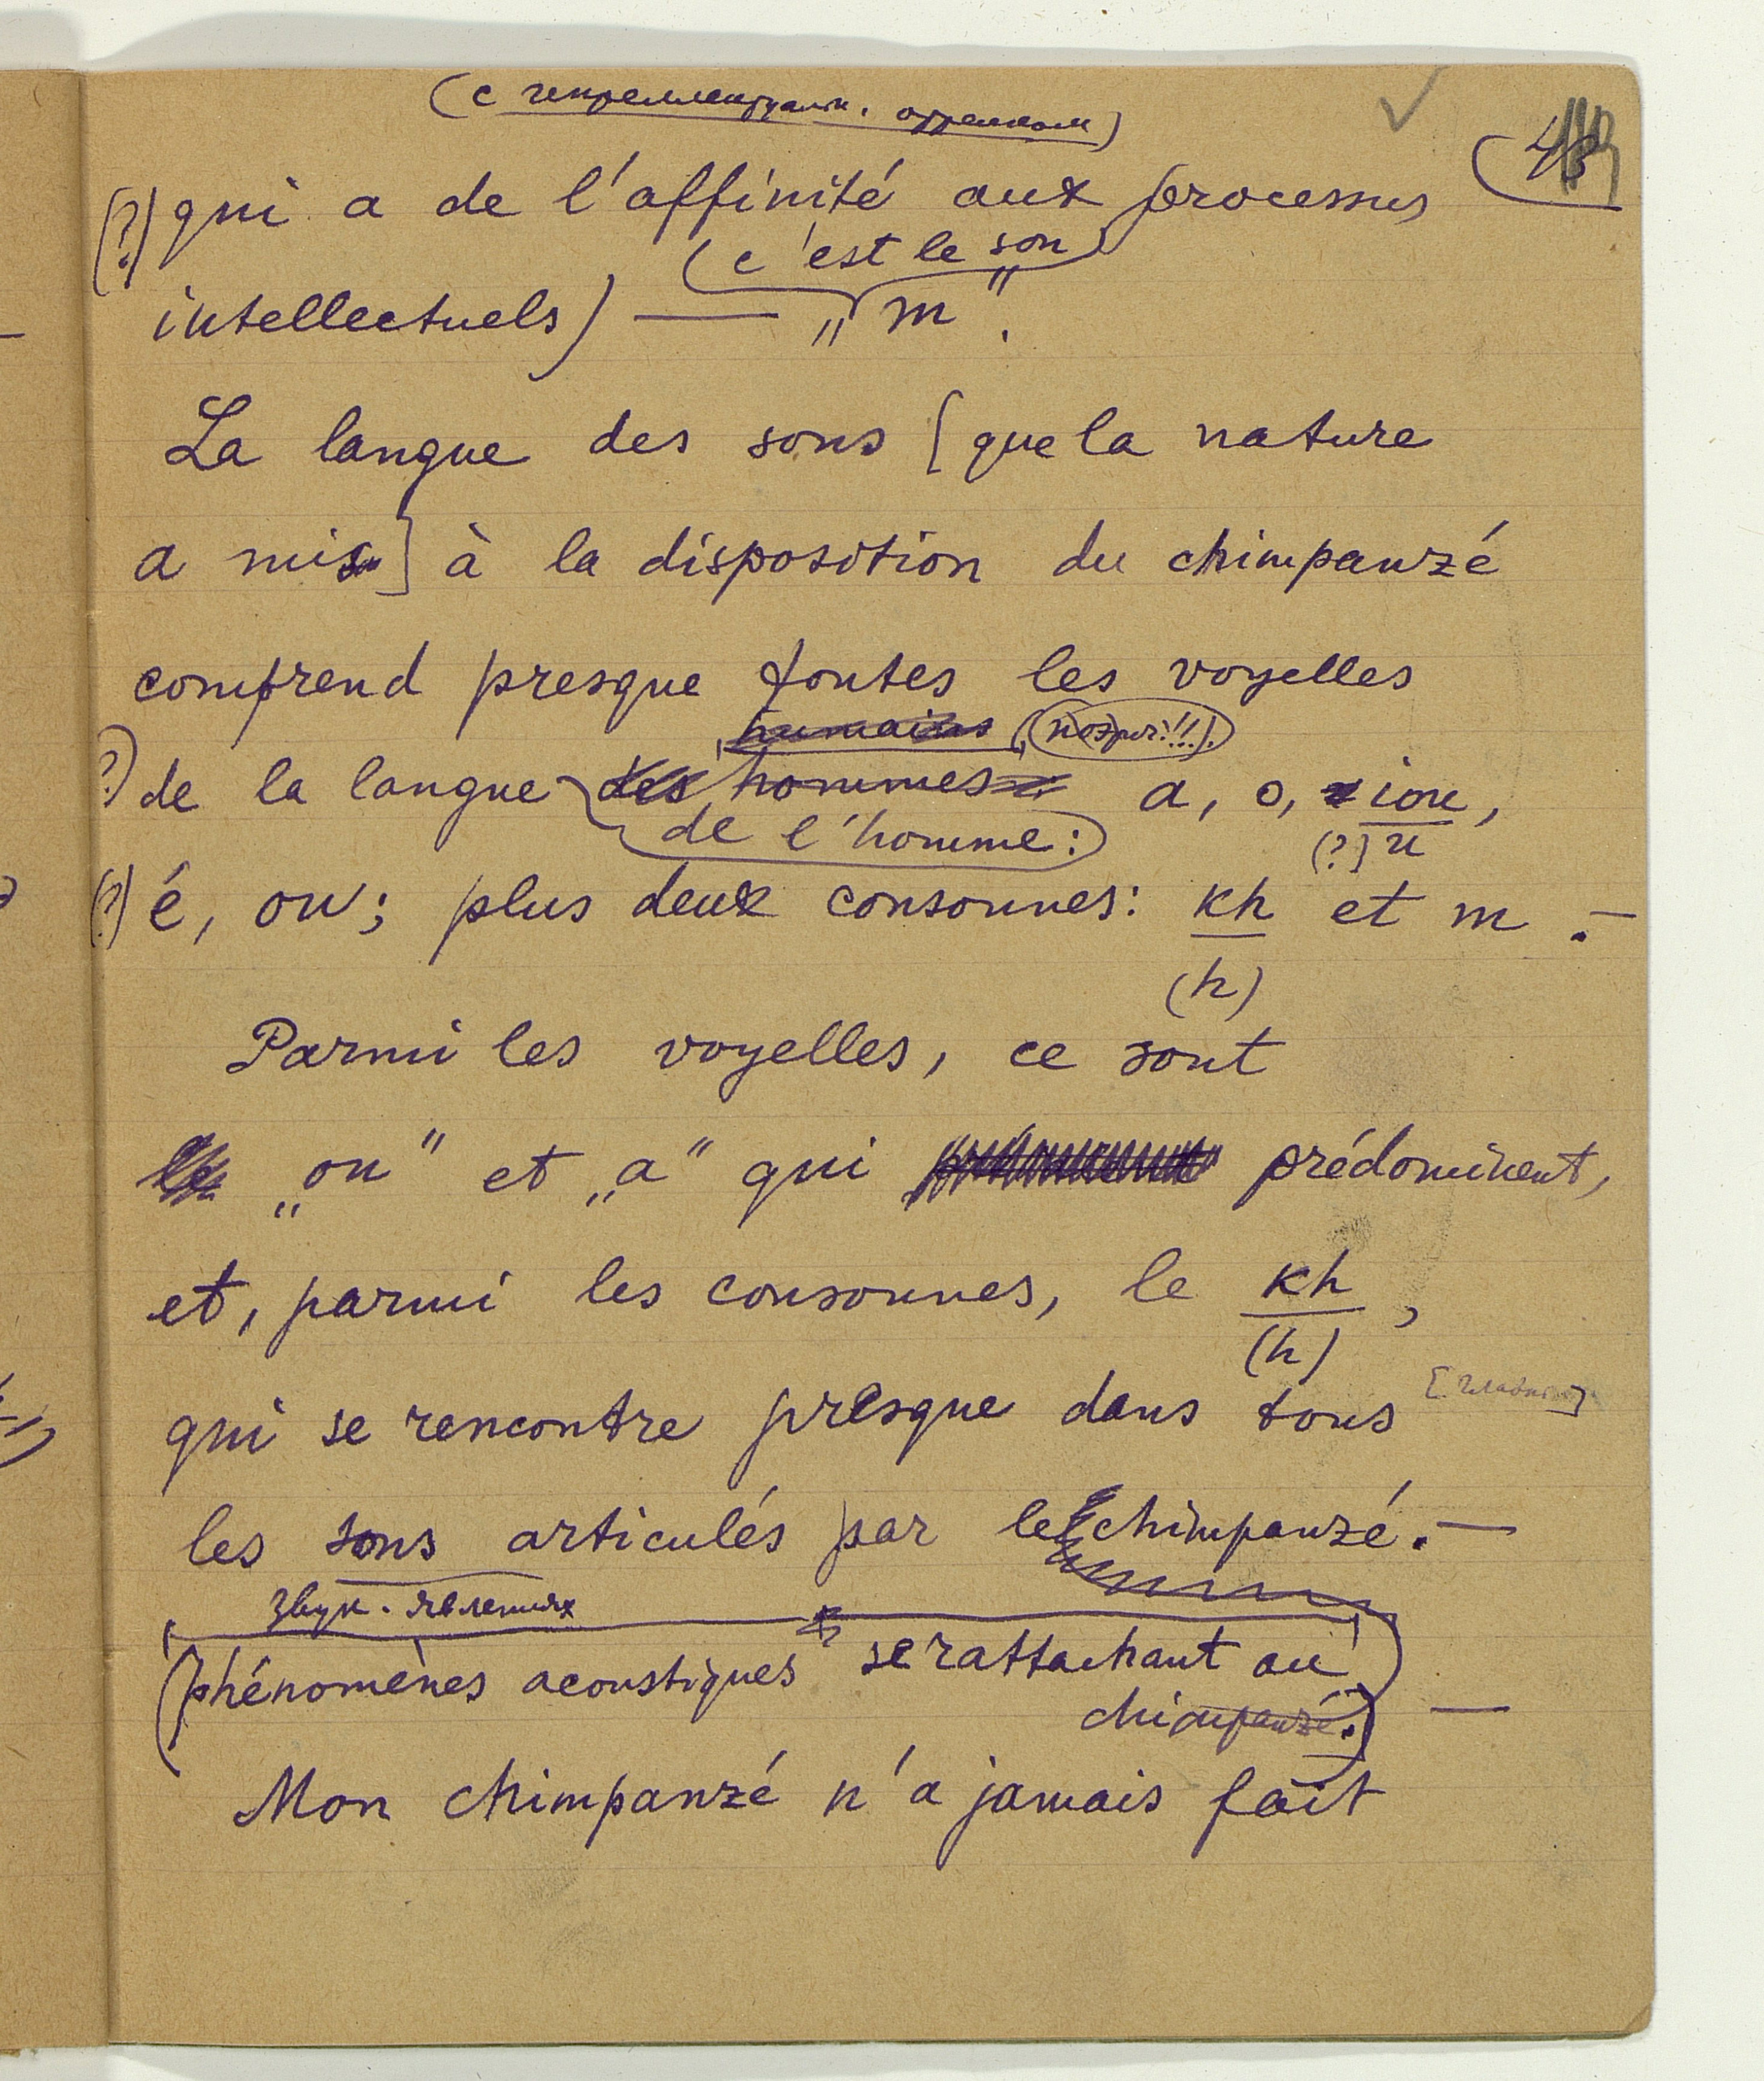 (с
(?) qui a de l'affinité aux processus
(c'est le son
intellectuels) — „m".
La langue des sons [que la nature
a mis] à la disposition du chimpanzé
comprend presque toutes les voyelles
humains
(?) de la langue des hommes a, o, iou,
de l'homme: (?) u
(?) é, ou; plus deux consonnes: kh et m. —
(h)
Parmi les voyelles, ce sont
„ou" et „a" qui prédominent,
et, parmi les consonnes, le kh,
(h)
qui se rencontre presque dans tous
les sons articulés par le chimpanzé. —
звук. явлениях
(phénomènes acoustiques se rattachant au
chimpanzé.) —
Mon chimpanzé n'a jamais fait